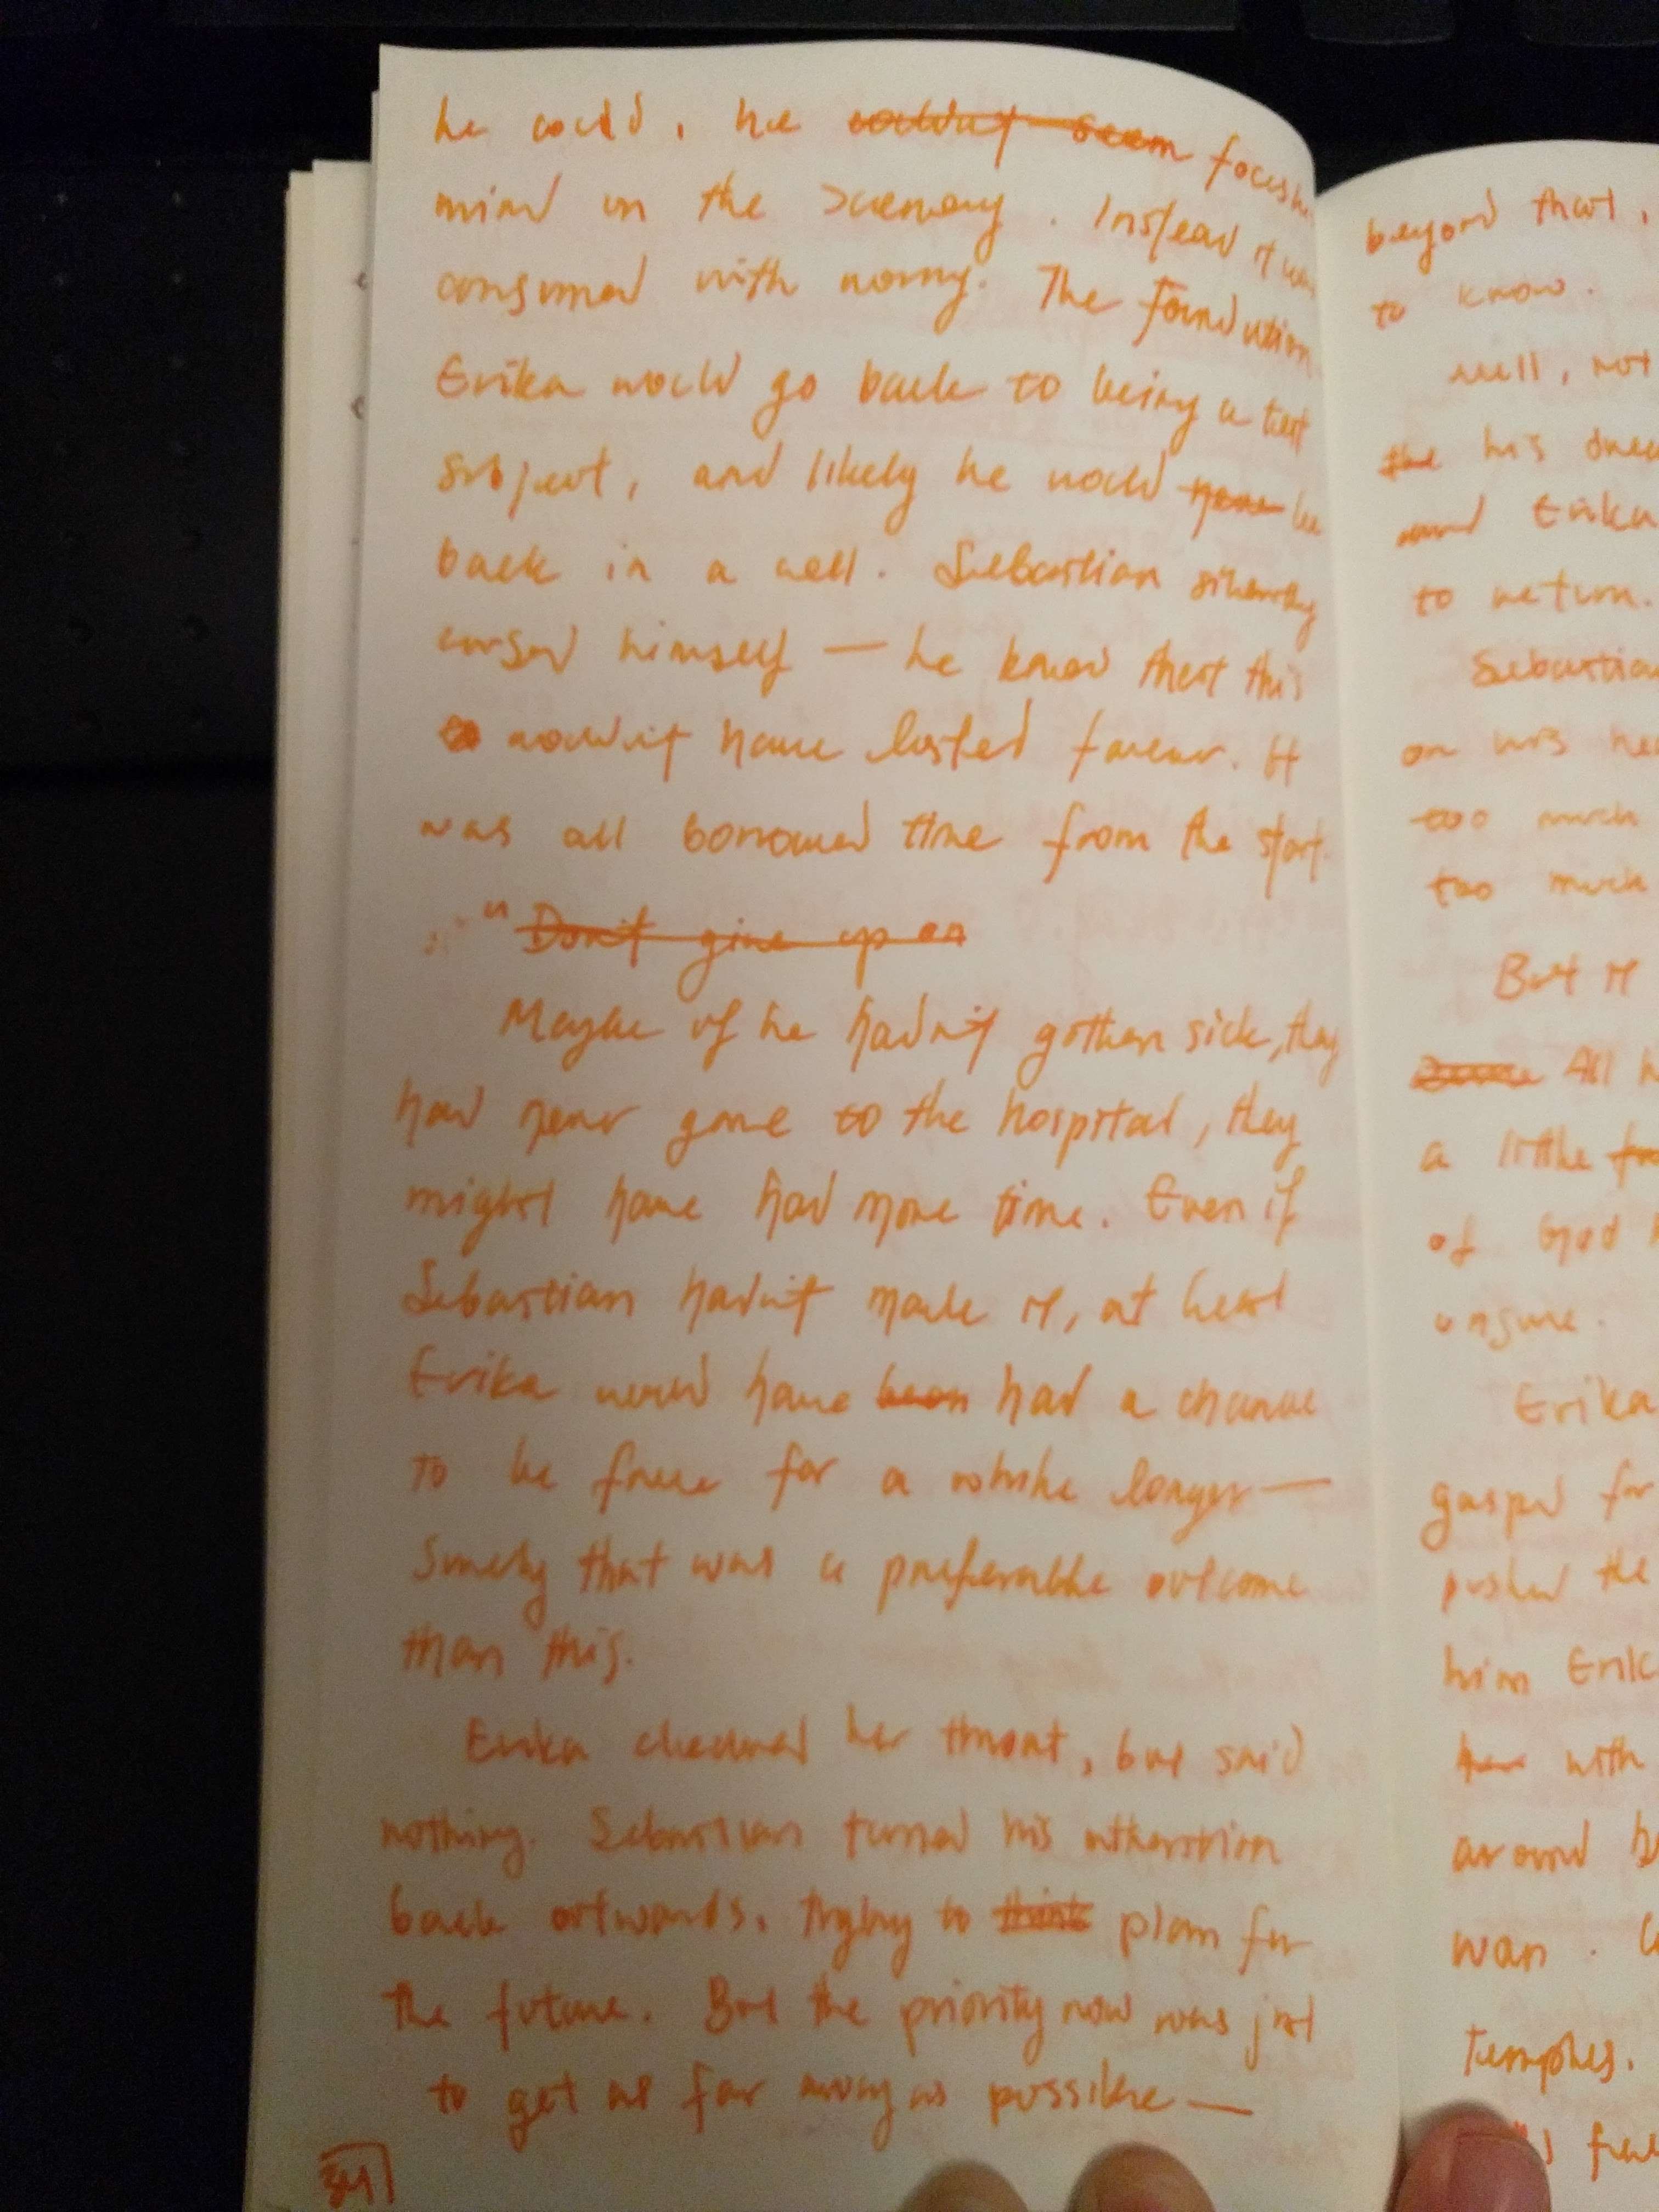 he could, he couldn't seem focus his
mind on the scenery. Instead it was
consumed with worry. The foundation
Erika would go back to being a test
subject, and likely he would have be
back in a cell. Sebastian silently
cursed himself — he knew that this
wouldn't have lasted forever. It
was all borrowed time from the start.
"Don't give up on
Maybe if he hadn't gotten sick, they
had never gone to the hospital, they
might have had more time. Even if
Sebastian hadn't made it, at least
Erika would have been had a chance
to be free for a while longer —
surely that was a preferable outcome
than this.
Erika cleared her throat, but said
nothing. Sebastian turned his attention
back outwards, trying to think plan for
the future. But the priority now was just
to get as far away as possible —
34
beyond that,
to know.
well, not
the his
and Erika
to return.
Sebastian
on his
too much
too much
But it
All h
a little
of God
unsure.
Erika
gasped for
pushed the
him Erik
her with
around
wan.
temples.